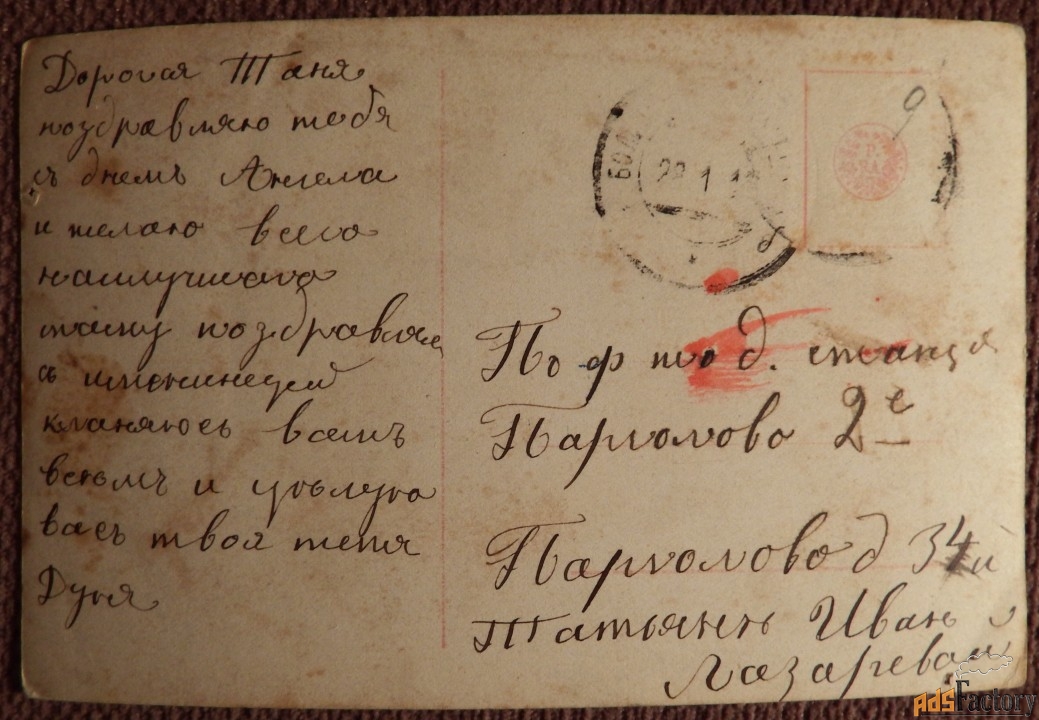 Дорогая Таня
поздравляю тебя
съ днемъ Ангела
и желаю всего
наилучшаго
маму поздравляю
съ именинецей
кланяюсь вамъ
всѣмъ и цѣлую
васъ твоя тетя
Дуня
28 1 1
По ф жд. станця
Парголово 2е
Парголово д 34й
Татьянѣ Иван
Лазаревой
adsFactory